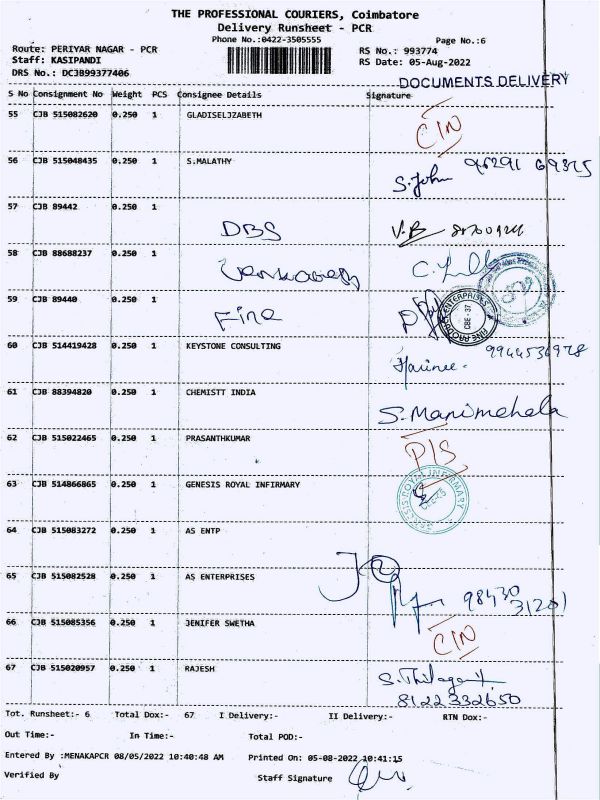 THE PROFESSIONAL COURIERS, Coimbatore
Delivery Runsheet - PCR
Phone No.:0422-3505555
Page No.:6
Route: PERIYAR NAGAR - PCR
RS No.: 993774
Staff: KASIPANDI
RS Date: 05-Aug-2022
DRS No.: DCJB99377406
DOCUMENTS DELIVERY
S No Consignment No Weight PCS Consignee Details Signature
55 CJB 515082620 0.250 1 GLADISELJZABETH CIN
56 CJB 515048435 0.250 1 S.MALATHY S.John
57 CJB 89442 0.250 1 DBS V.B
58 CJB 88688237 0.250 1
59 CJB 89440 0.250 1 Fine
FINE PRODUCT ENTERPRISES CBE-37
60 CJB 514419428 0.250 1 KEYSTONE CONSULTING 9944536978
61 CJB 88394820 0.250 1 CHEMISTT INDIA S.Manimehala
62 CJB 515022465 0.250 1 PRASANTHKUMAR P/S
63 CJB 514866865 0.250 1 GENESIS ROYAL INFIRMARY
GENESIS ROYAL INFIRMARY
64 CJB 515083272 0.250 1 AS ENTP
65 CJB 515082528 0.250 1 AS ENTERPRISES 98430 31201
66 CJB 515085356 0.250 1 JENIFER SWETHA CIN
67 CJB 515020957 0.250 1 RAJESH
8122332650
Tot. Runsheet:- 6 Total Dox:- 67 I Delivery:- II Delivery:- RTN Dox:-
Out Time:- In Time:- Total POD:-
Entered By :MENAKAPCR 08/05/2022 10:40:48 AM Printed On: 05-08-2022 10:41:15
Verified By Staff Signature